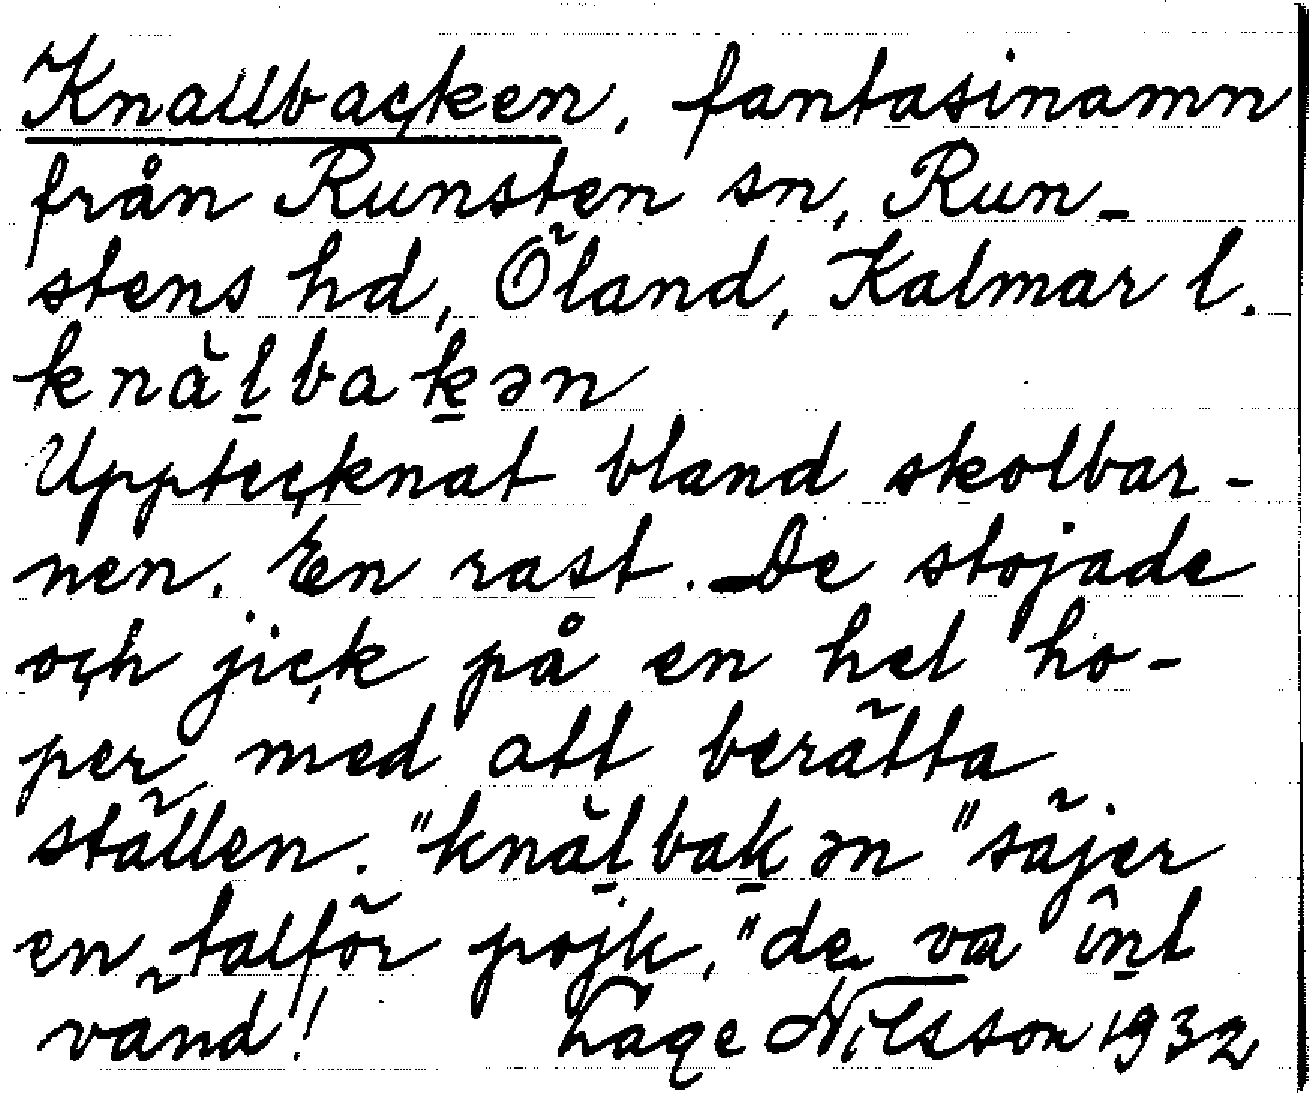 Knallbacken, fantasinamn
från Runsten sn, Run-
stens hd, Öland, Kalmar l.
knàl̲bak̲ən
Upptecknat bland skolbar-
nen. En rast. De stojade
och jick på en hel ho-
per med att berätta
ställen. "knàl̲bak̲ən" säjer
en talför pojk, "de va în̲t
vänd! Lage Nilsson 1932